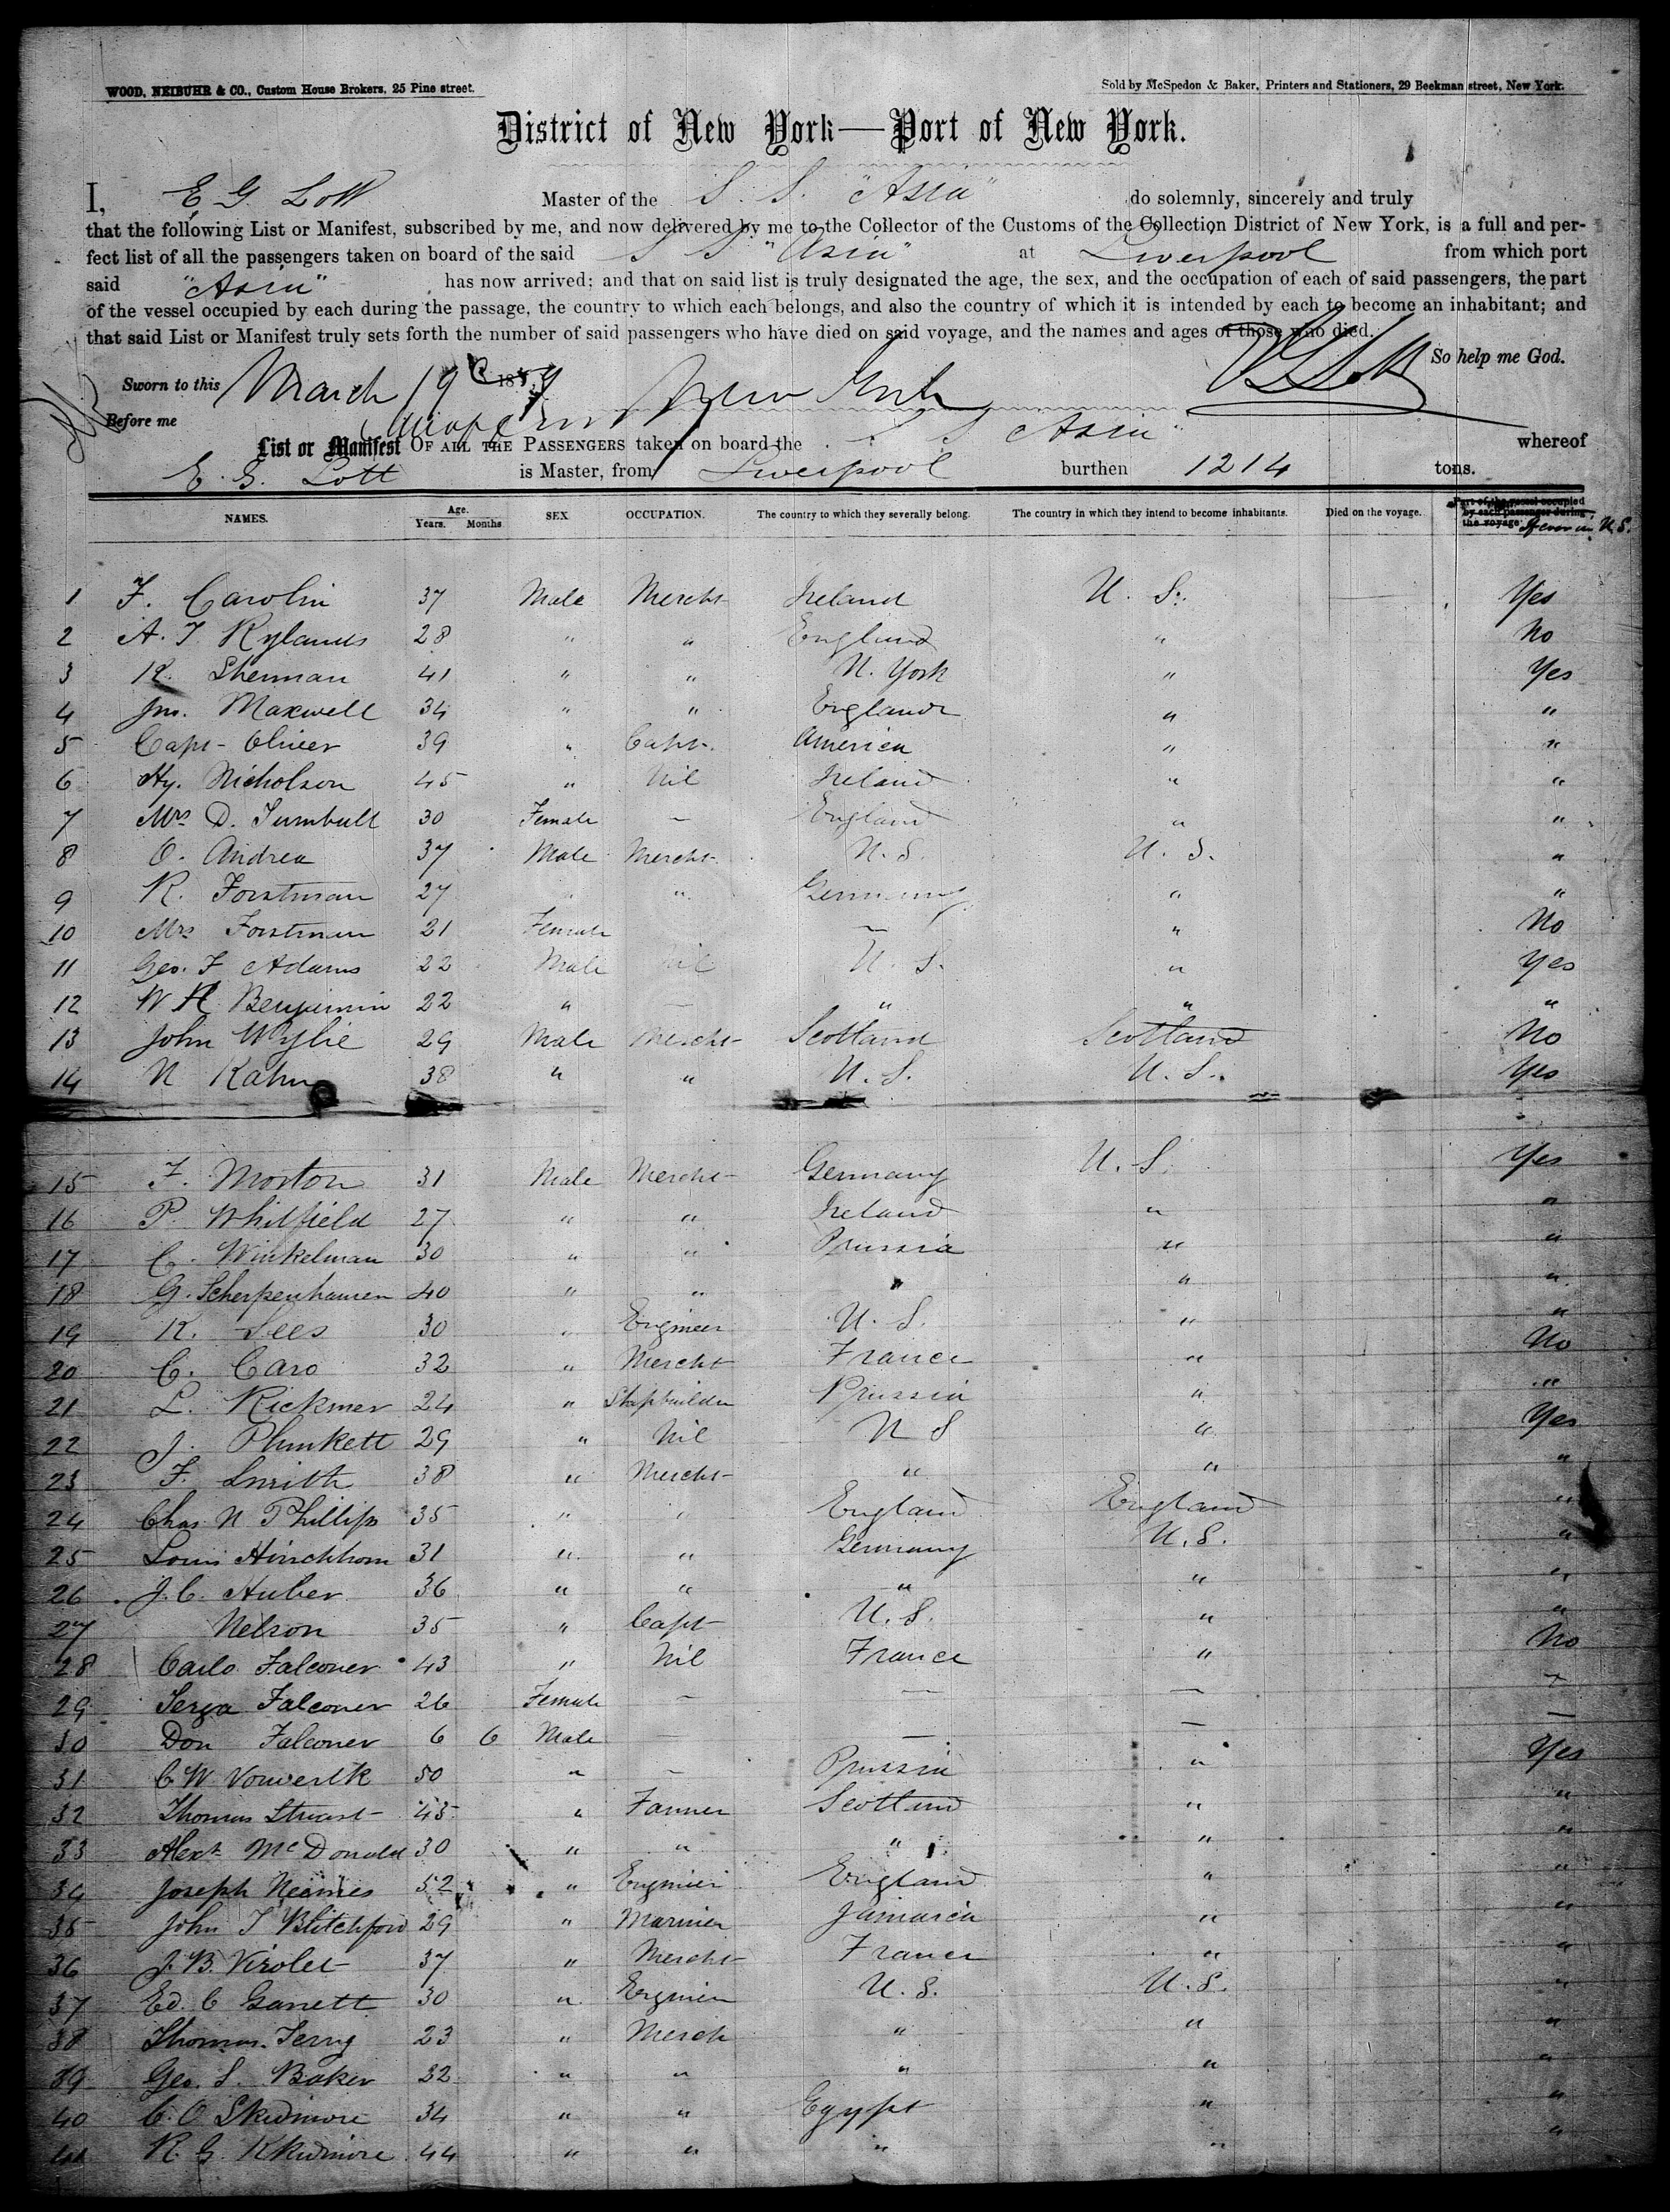 WOOD, NEIBUHR & CO., Custom House Brokers, 25 Pine street.
Sold by McSpedon & Baker, Printers and Stationers, 29 Beekman street, New York.
District of New York—Port of New York.
I, E G Lott Master of the S. S. "Asia" do solemnly, sincerely and truly
that the following List or Manifest, subscribed by me, and now delivered by me to the Collector of the Customs of the Collection District of New York, is a full and per-
fect list of all the passengers taken on board of the said S S "Asia" at Liverpool from which port
said "Asia" has now arrived; and that on said list is truly designated the age, the sex, and the occupation of each of said passengers, the part
of the vessel occupied by each during the passage, the country to which each belongs, and also the country of which it is intended by each to become an inhabitant; and
that said List or Manifest truly sets forth the number of said passengers who have died on said voyage, and the names and ages of those who died.
So help me God.
Sworn to this March 19 185 New York E G Lott
Before me
List or Manifest OF ALL THE PASSENGERS taken on board the S S Asia" whereof
E. G. Lott is Master, from Liverpool burthen 1214 tons.
NAMES. Age. Years. Months SEX OCCUPATION. The country to which they severally belong. The country in which they intend to become inhabitants. Died on the voyage. Part of the vessel occupied by each passenger during the voyage. Ever in U.S.
1 F. Carolin 37 Male Mercht Ireland U. S. Yes
2 A. T. Rylands 28 " " England " No
3 R. Sherman 41 " " N. York " Yes
4 Jno. Maxwell 34 " " England " "
5 Capt- Oliver 39 " Capt. America " "
6 Hy. Nicholson 45 " Nil Ireland " "
7 Mrs D. Turnbull 30 Female – England " "
8 O. Andrea 37 Male Mercht U. S. U. S. "
9 R. Forstman 27 " " Germany " "
10 Mrs Forstman 21 Female – " No
11 Geo. F Adams 22 Male Nil U. S. " Yes
12 W H Benjamin 22 " – " " "
13 John Wylie 29 Male Mercht Scotland Scotland No
14 N Kahn 38 " " U. S. U. S. Yes
15 F. Morton 31 Male Mercht Germany U. S. Yes
16 P. Whitfield 27 " " Ireland " "
17 C. Winkelman 30 " " Prussia " "
18 G. Scherpenhausen 40 " " " " "
19 R. Lees 30 " Engineer U. S. " "
20 C. Caro 32 " Mercht France " No
21 L. Rickmer 24 " Shipbuilder Prussia " "
22 J. Plunkett 29 " Nil U S " Yes
23 F. Smith 38 " Mercht " " "
24 Chas N Phillips 35 " " England England "
25 Louis Hirschhorn 31 " " Germany U. S. "
26 J. C. Huber 36 " " " " "
27 Nelson 35 " Capt U. S. " "
28 Carlo Falconer 43 " Nil France " No
29 Falconer 26 Female – – –
30 Don Falconer 6 6 Male – – – –
31 C W 50 " – Prussia " Yes
32 Thomas Stuart 45 " Farmer Scotland " "
33 Alexr McDonald 30 " " " " "
34 Joseph 52 " Engineer England " "
35 John T Blitchford 29 " Mariner Jamaica " "
36 J. B. Virolet 37 " Mercht France " "
37 Ed. C Garrett 30 " Engineer U. S. U. S. "
38 Thomas Terry 23 " Merch " " "
39 Geo. S. Baker 32 " " " " "
40 C. O Skidmore 34 " " Egypt " "
41 R. G. Skidmore 44 " " " " "